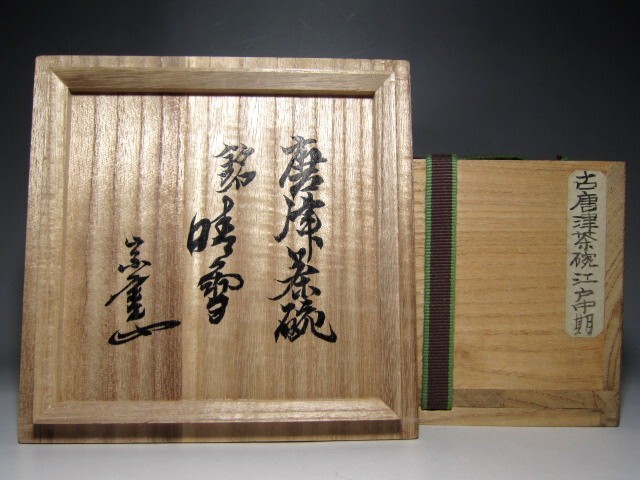 唐津茶碗
銘
晴雪
古唐津茶碗江戸中期